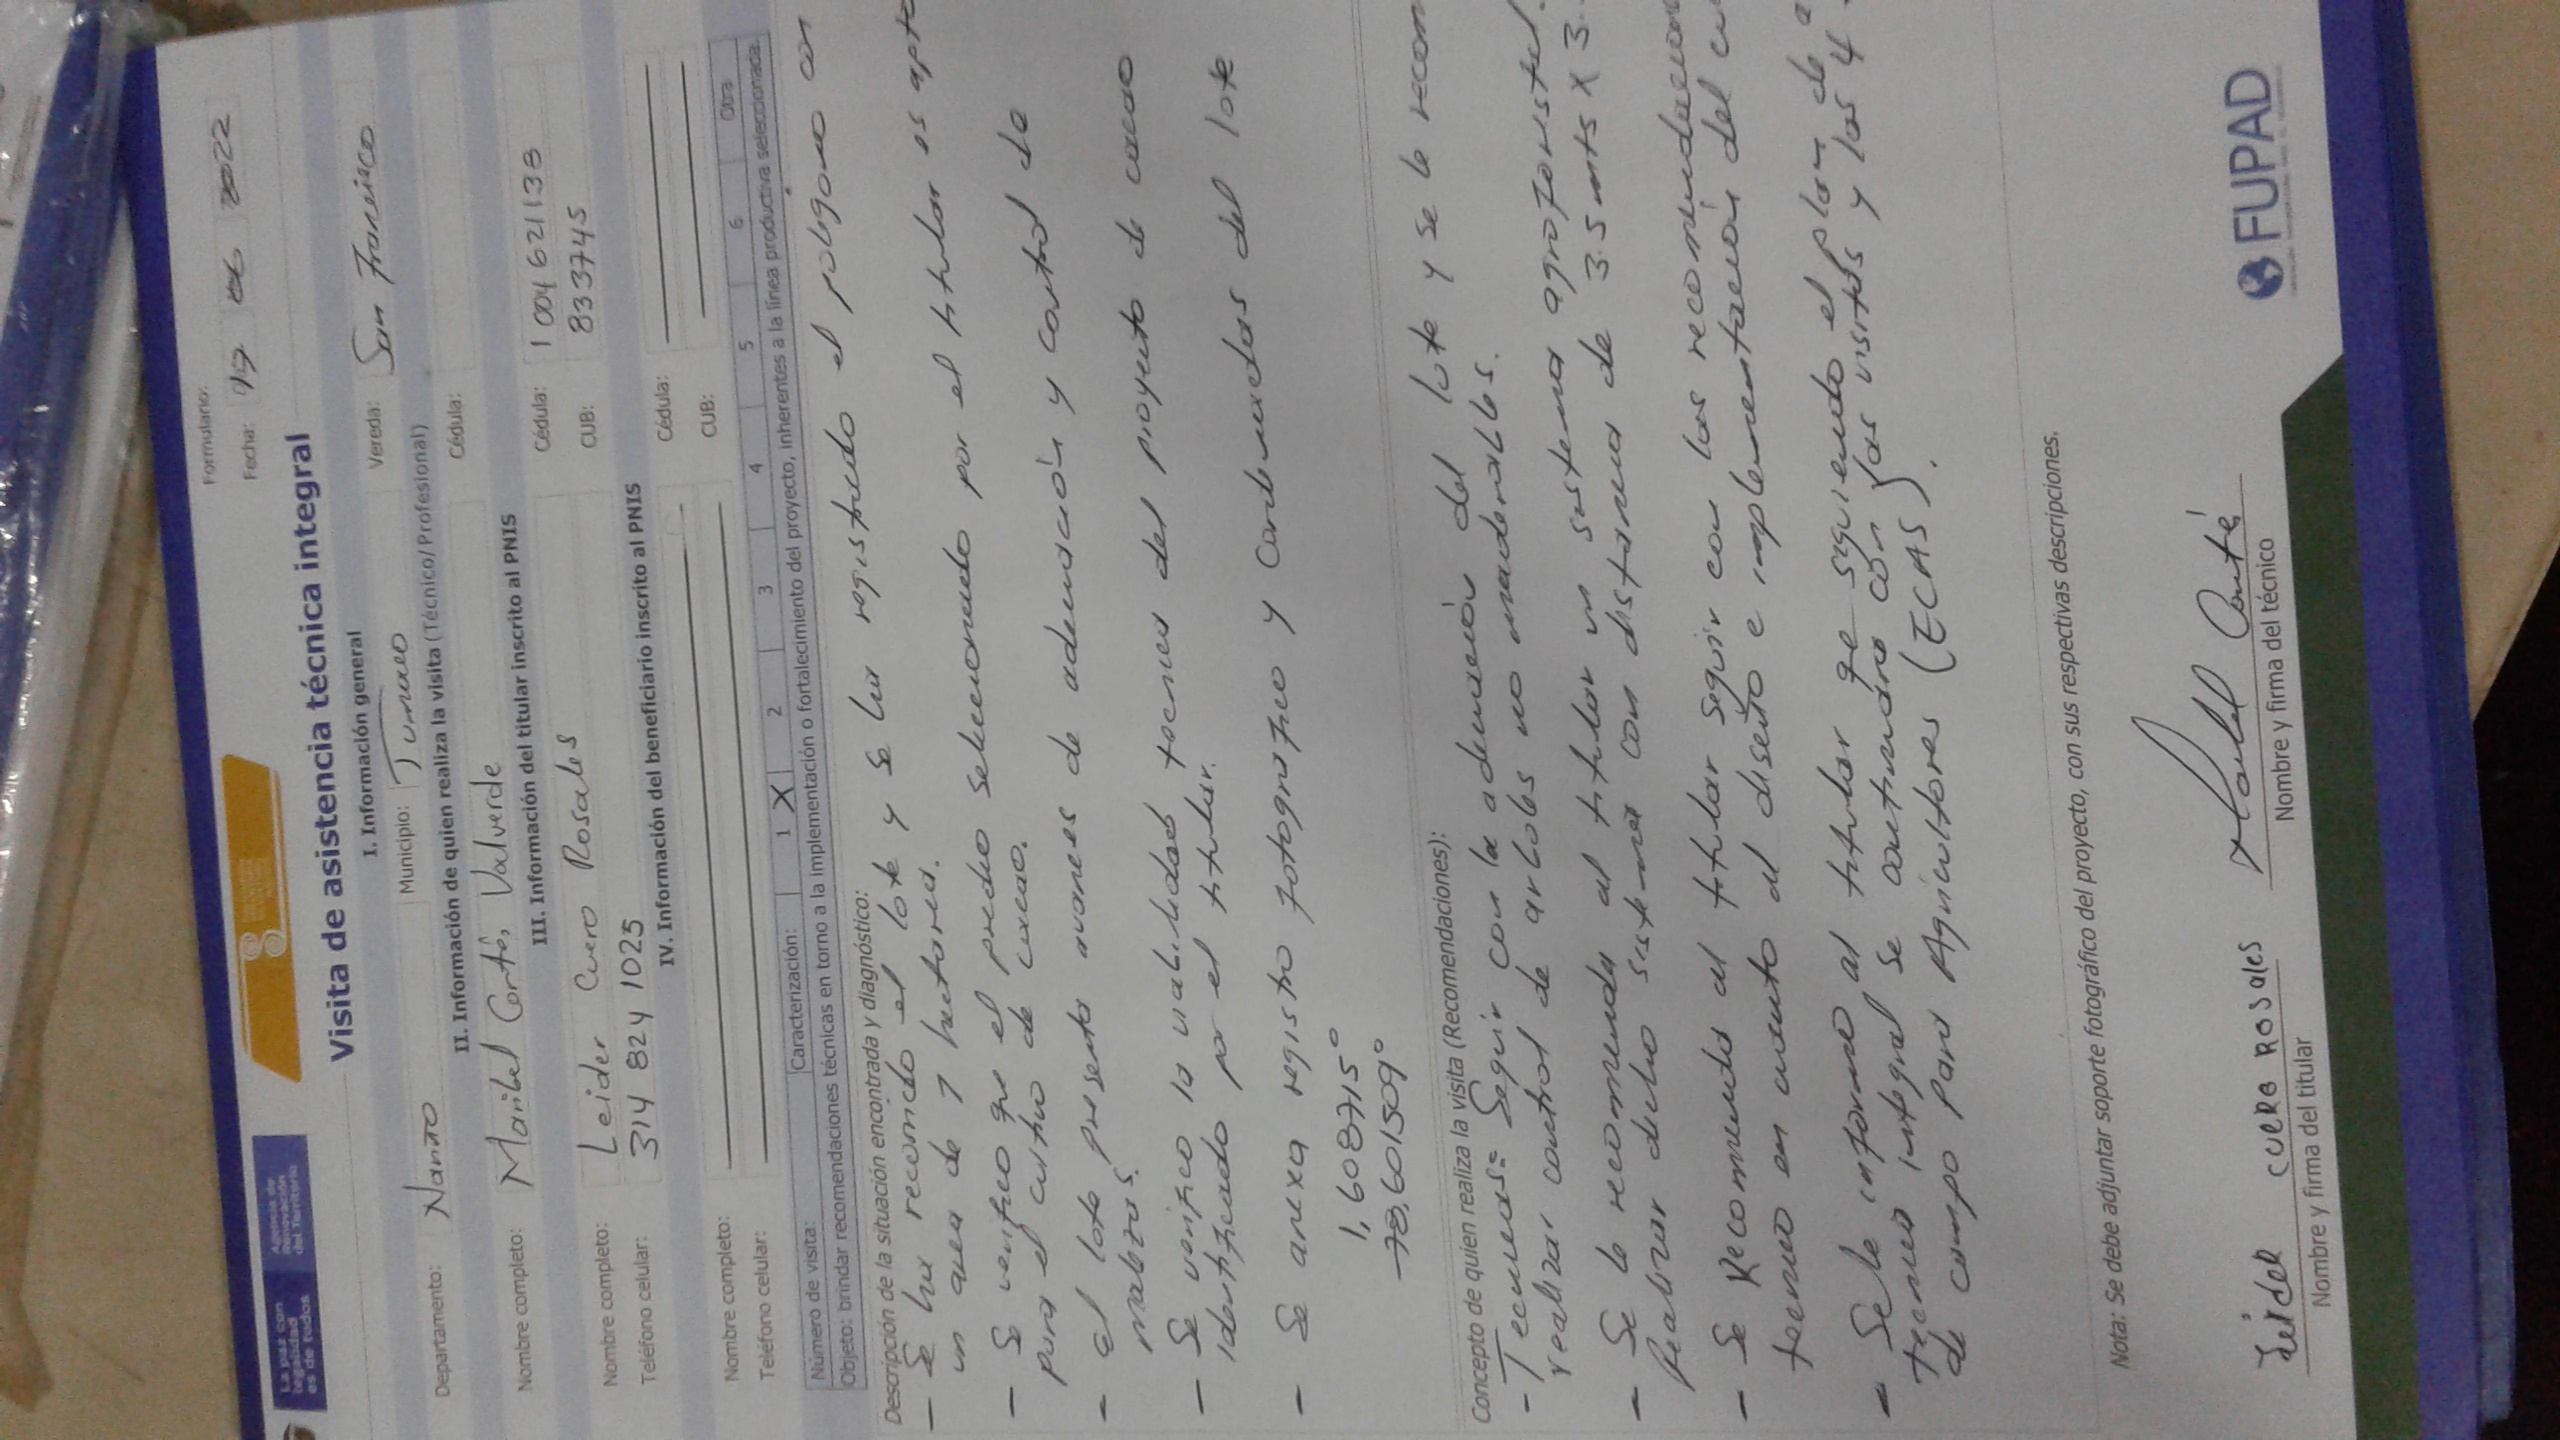 La paz con
legalidad
es de todos
Agencia de
Renovación
del Territorio
Formulario:
Fecha: 06 2022
Visita de asistencia técnica integral
I. Información general
Departamento: Nariño Municipio: Tumaco Vereda: San Francisco
II. Información de quien realiza la visita (Técnico/Profesional)
Nombre completo: Maribel Cortés Valverde Cédula:
III. Información del titular inscrito al PNIS
Nombre completo: Leider Cuero Rosales Cédula: 1004621138
Teléfono celular: 314 824 1025 CUB: 833745
IV. Información del beneficiario inscrito al PNIS
Nombre completo: Cédula:
Teléfono celular: CUB:
Número de visita: Caracterización: 1 X 2 3 4 5 6 Otra
Objeto: brindar recomendaciones técnicas en torno a la implementación o fortalecimiento del proyecto, inherentes a la línea productiva seleccionada.
Descripción de la situación encontrada y diagnóstico:
- Se ha recorrido el lote y se ha registrado el poligono con
un area de 1 hectarea.
- Se verifico que el predio seleccionado por el titular es apto
para el cultivo de cacao.
- el lote presenta avances de adecuación y control de
malezas.
- Se verifico la viabilidad tecnica del proyecto de cacao
identificado por el titular.
- Se anexa registro fotografico y Coordenadas del lote
1,608715°
-78,601509°
Concepto de quien realiza la visita (Recomendaciones):
- Tecnicas: Seguir con la adecuación del lote y se le recom
realizar control de arboles no maderables.
- Se le recomienda al titular un sistema agroforestal.
Realizar dicho sistema con distancia de 3.5 mts x 3.
- Se Recomienda al titular seguir con las recomendacion
tecnico en cuanto al diseño e implementación del cu
- Se le informo al titular qe siguiendo el plan de a
tecnica integral se continuára con las visitas y las 4
de campo para Agricultores (ECAS).
Nota: Se debe adjuntar soporte fotográfico del proyecto, con sus respectivas descripciones.
Leider cuero Rosales
Nombre y firma del titular
Maribel Cortés
Nombre y firma del técnico
FUPAD